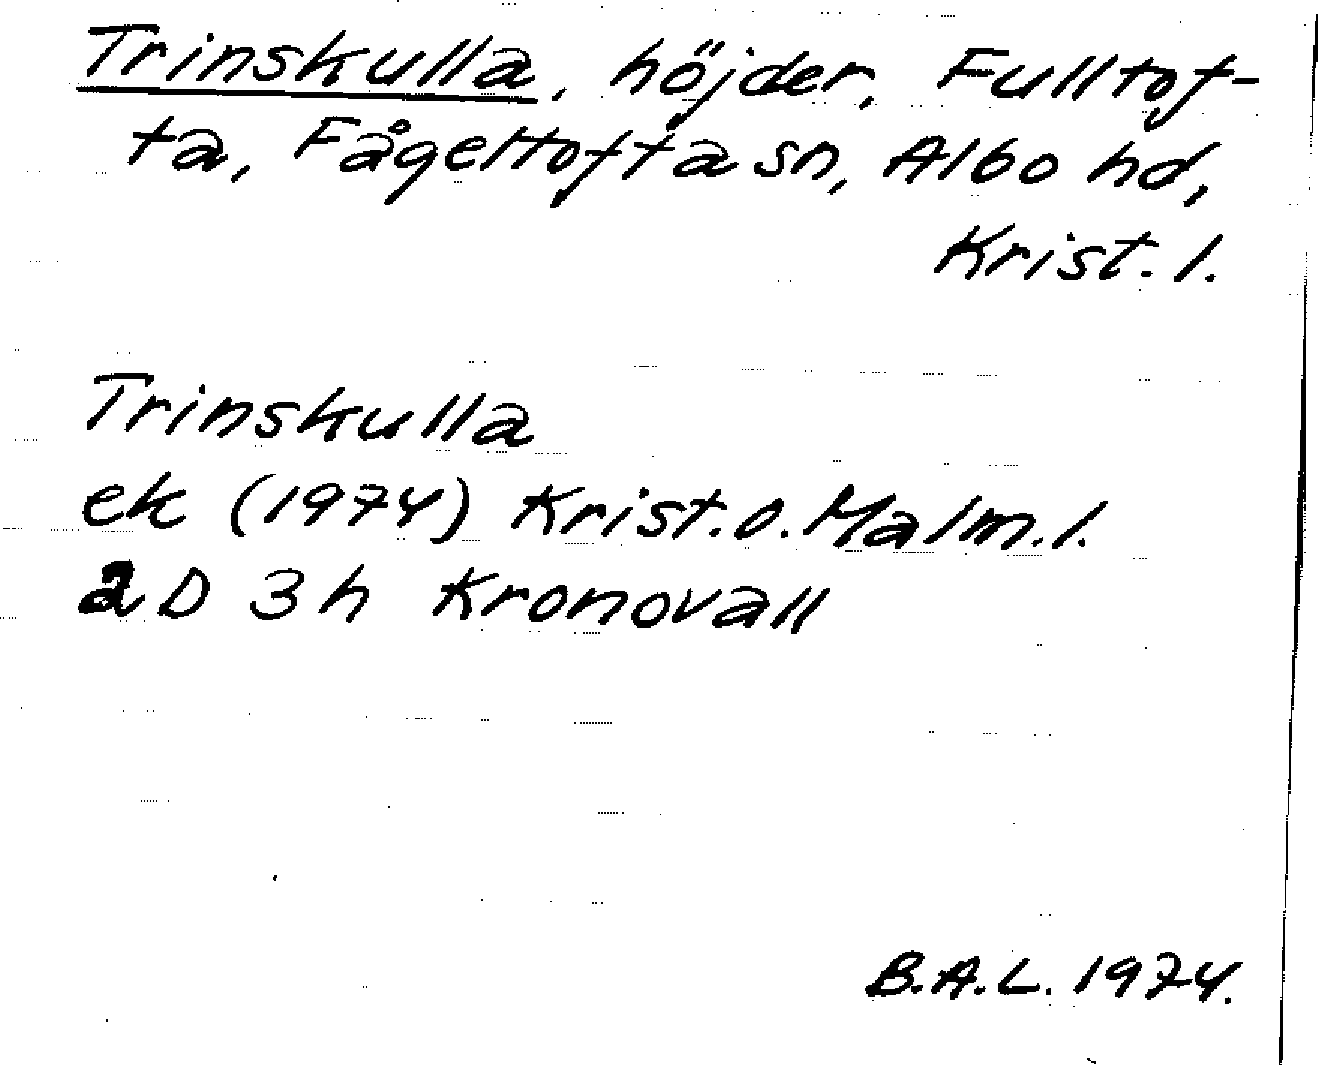 Trinskulla, höjder, Fulltof-
ta, Fågeltofta sn, Albo hd,
Krist. l.
Trinskulla
ek (1974) Krist. o. Malm. l.
2D 3h Kronovall
B.A.L. 1974.